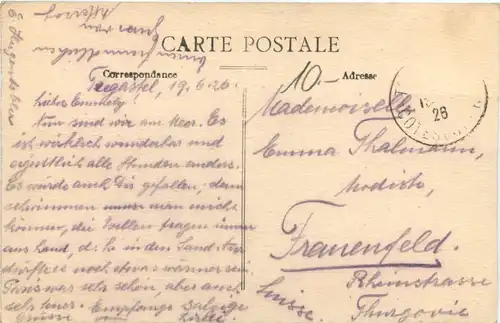 CARTE POSTALE
Correspondance
Adresse
10.-
26
Tregastel, 19.6.26.
Liebes Emmely!
Nun sind wir am Meer. Es
ist wirklich wunderbar und
eigentlich alle Stunden anders.
Es würde auch Dir gefallen, denn
schwimmen muss man nicht
können, die Wellen tragen immer
ans Land, d. h. in den Sand. Aber
dürfte es noch etwas wärmer sein
Paris war sehr schön aber auch
sehr teuer. Empfange Salzige
Grüsse von
einen freundlichen
Gruss von
Mademoiselle
Emma Thalmann,
Modiste,
Frauenfeld.
Rheinstrasse
Suisse. Thurgovie